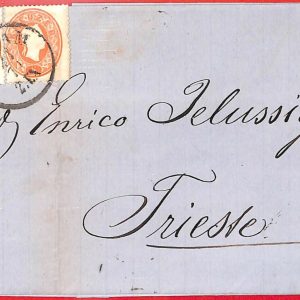 Enrico Jelussig
Trieste